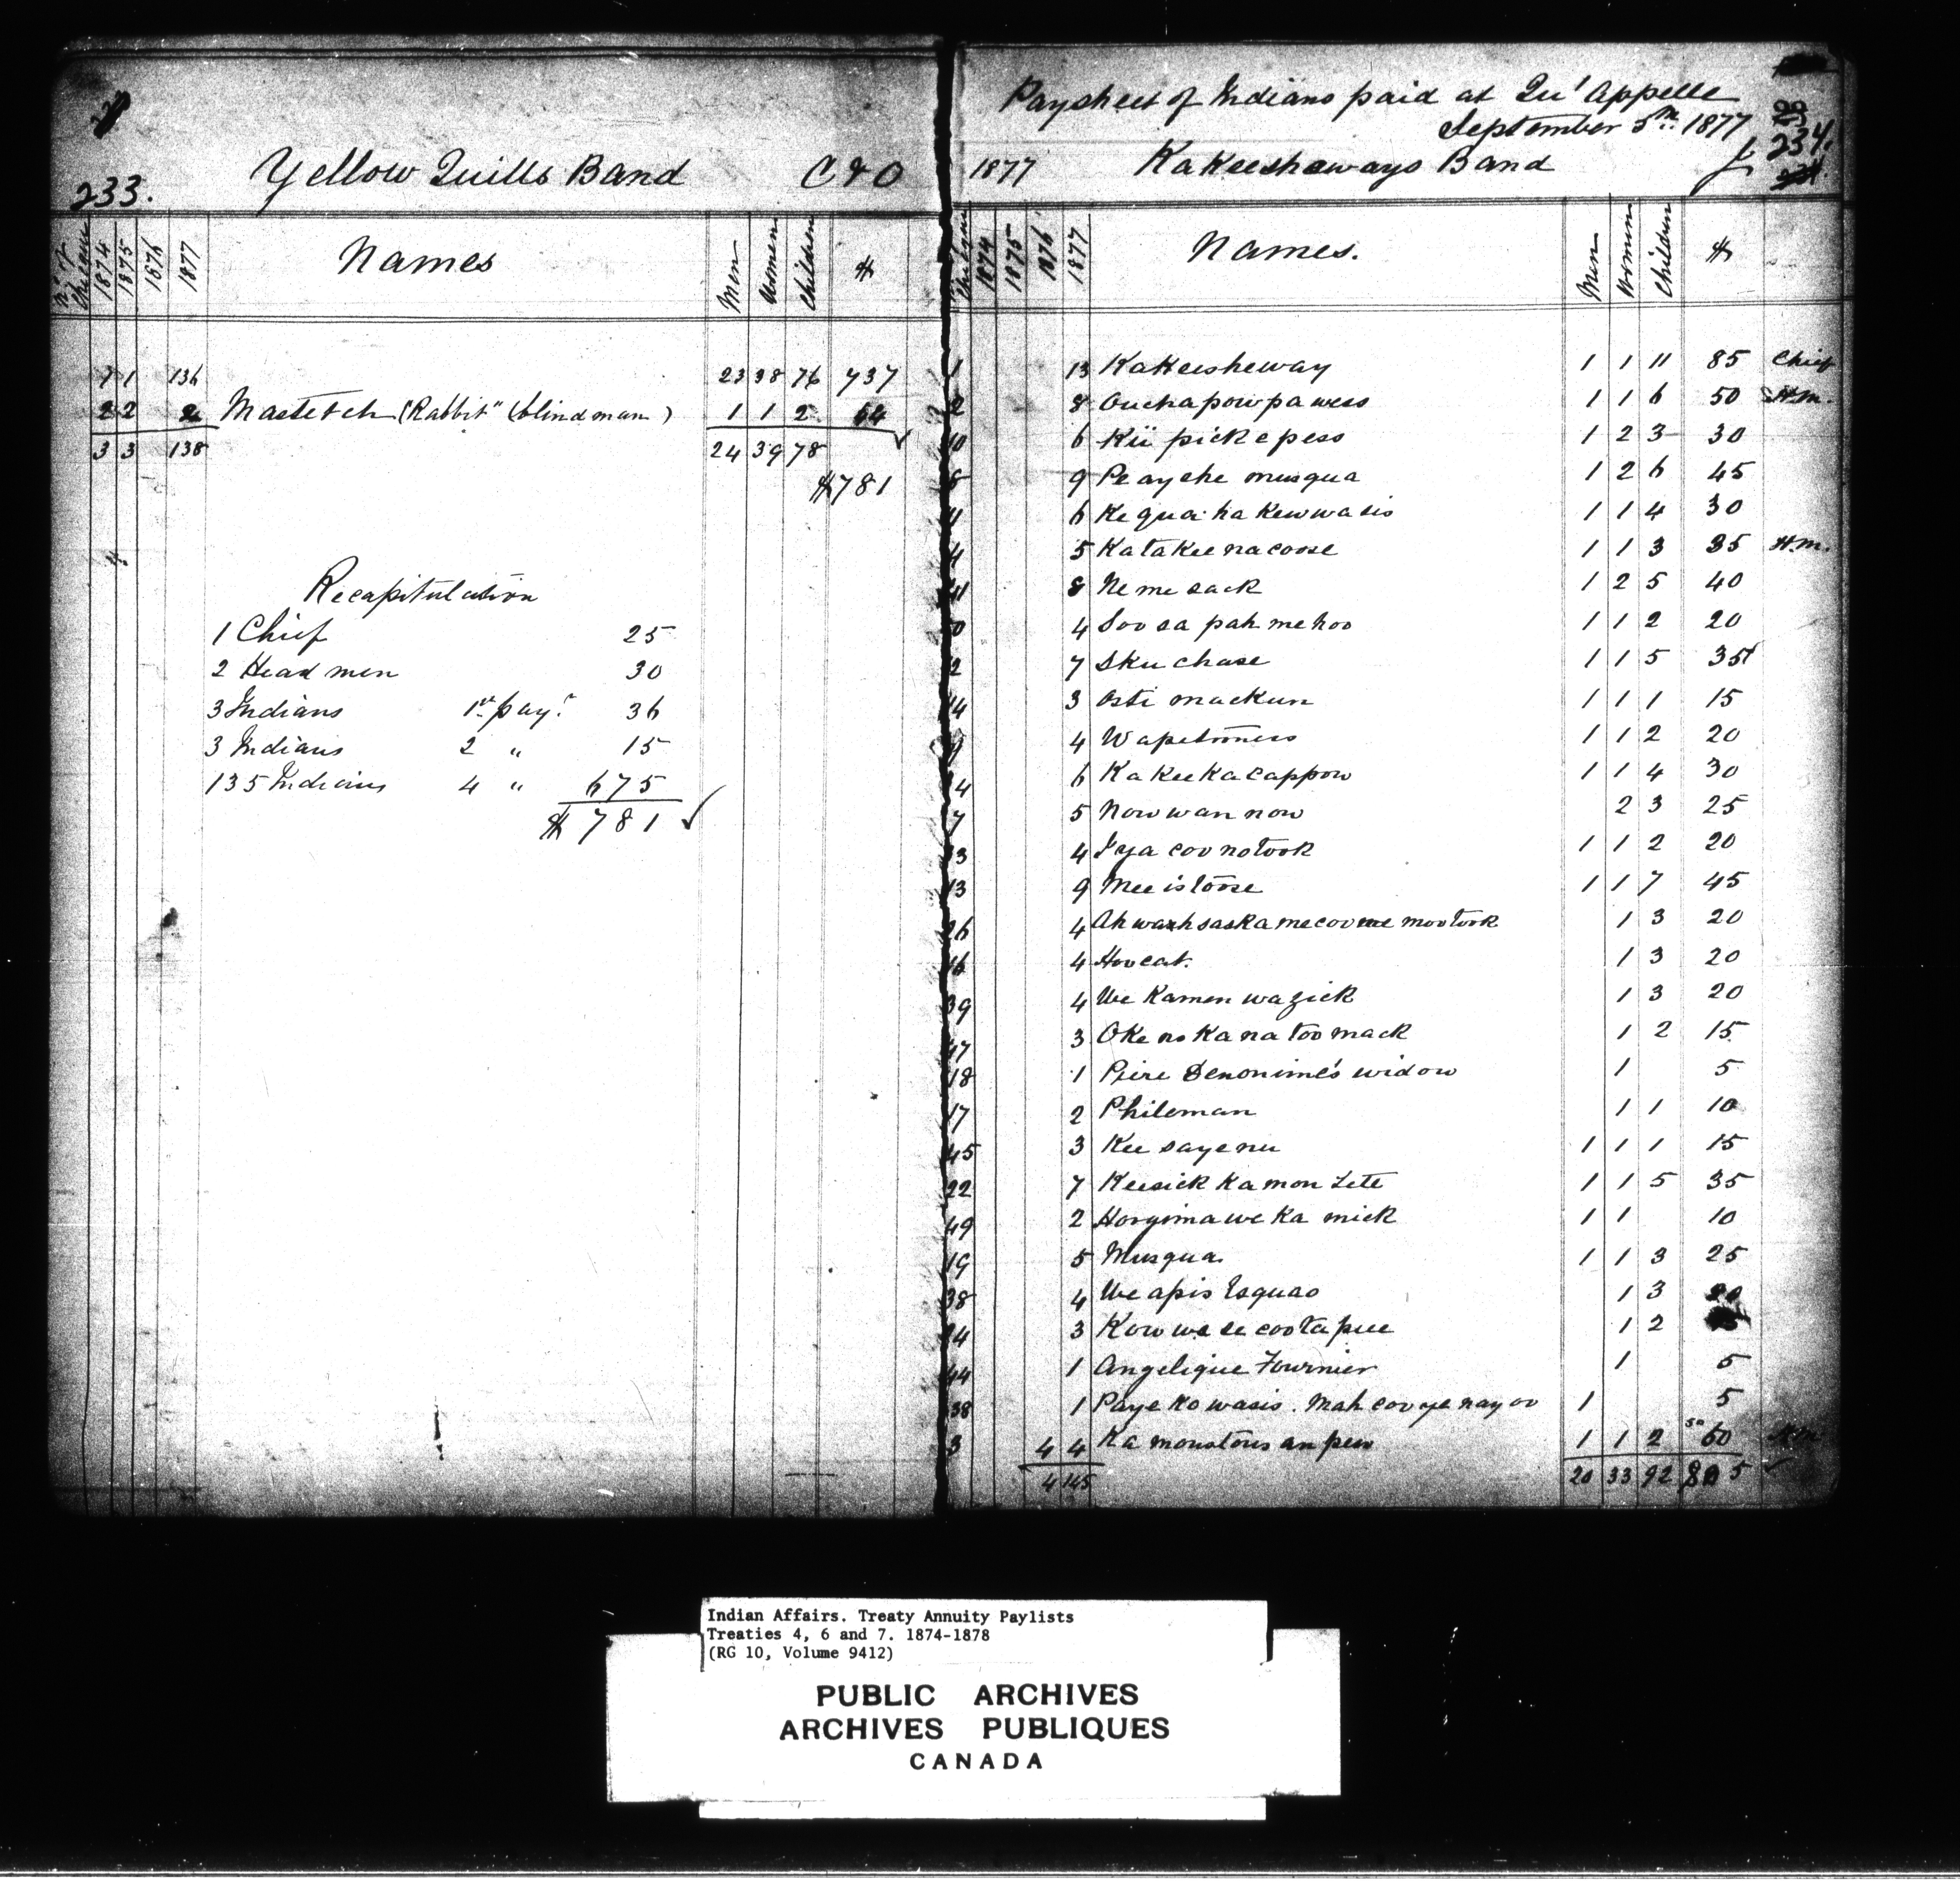 233.
Yellow Quills Band C & O
No. of Cheque 1874 1875 1876 1877 Names Men Women Children $
1 136 23 38 76 737
2 2 2 Mastetch "Rabbit" (blind man) 1 1 2 44
3 3 138 24 39 78
$781
Recapitulation
1 Chief 25
2 Head men 30
3 Indians 1st pay.t 36
3 Indians 2 " 15
135 Indians 4 " 675
$781
Paysheet of Indians paid at Qu'Appelle
September 5th 1877
234.
1877 Kakeesheways Band
1874 1875 1876 1877 Names. Men Women Children $
1 13 Kakeesheway 1 1 11 85 Chief
2 8 Ouchapowpawess 1 1 6 50 H.m.
10 6 Kii pickepess 1 2 3 30
8 9 Peayche musqua 1 2 6 45
6 Kequa ha kewwasis 1 1 4 30
4 5 Katakeenacoose 1 1 3 35 H.m.
41 8 Ne me sack 1 2 5 40
4 Soosa pah me hoo 1 1 2 20
2 7 Skuchase 1 1 5 35
14 3 Osti mackun 1 1 1 15
4 Wapetomess 1 1 2 20
4 6 Ka Kee Ka cappow 1 1 4 30
7 5 Now wan now 2 3 25
13 4 Iya coo no took 1 1 2 20
13 9 Mee is toose 1 1 7 45
26 4 Ahwaxhsaskamecoome mootook 1 3 20
16 4 Hoo cat. 1 3 20
39 4 We Kamen wa zick 1 3 20
47 3 Oke no ka na too mack 1 2 15
18 1 Piere Denonime's widow 1 5
17 2 Phileman 1 1 10
45 3 Kee saye nu 1 1 1 15
22 7 Keesick Ka mon Lete 1 1 5 35
49 2 Hooyimawe Ka mick 1 1 10
19 5 Musqua 1 1 3 25
38 4 We apis Esquao 1 3 20
3 Kow we se coo ta pee 1 2
44 1 Angelique Fournier 1 5
38 1 Paye ko wasis. Mah coo ye nay oo 1 5
3 4 4 Ka moustous an pew 1 1 2 50 60 H.m.
4 145 20 33 92 805
Indian Affairs. Treaty Annuity Paylists
Treaties 4, 6 and 7. 1874-1878
(RG 10, Volume 9412)
PUBLIC ARCHIVES
ARCHIVES PUBLIQUES
CANADA